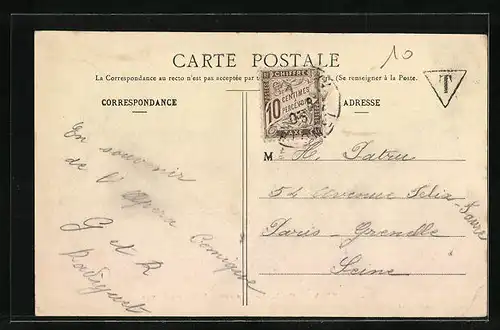 10
CARTE POSTALE
La Correspondance au recto n'est pas acceptée par t (Se renseigner à la Poste.
CORRESPONDANCE
ADRESSE
CHIFFRE
10 CENTIMES
A PERCEVOIR
TAXE
T
En souvenir
de l'Opera Comique
G et R
M H. Patru
54 Avenue Felix-Faure
Paris-Grenelle
Seine